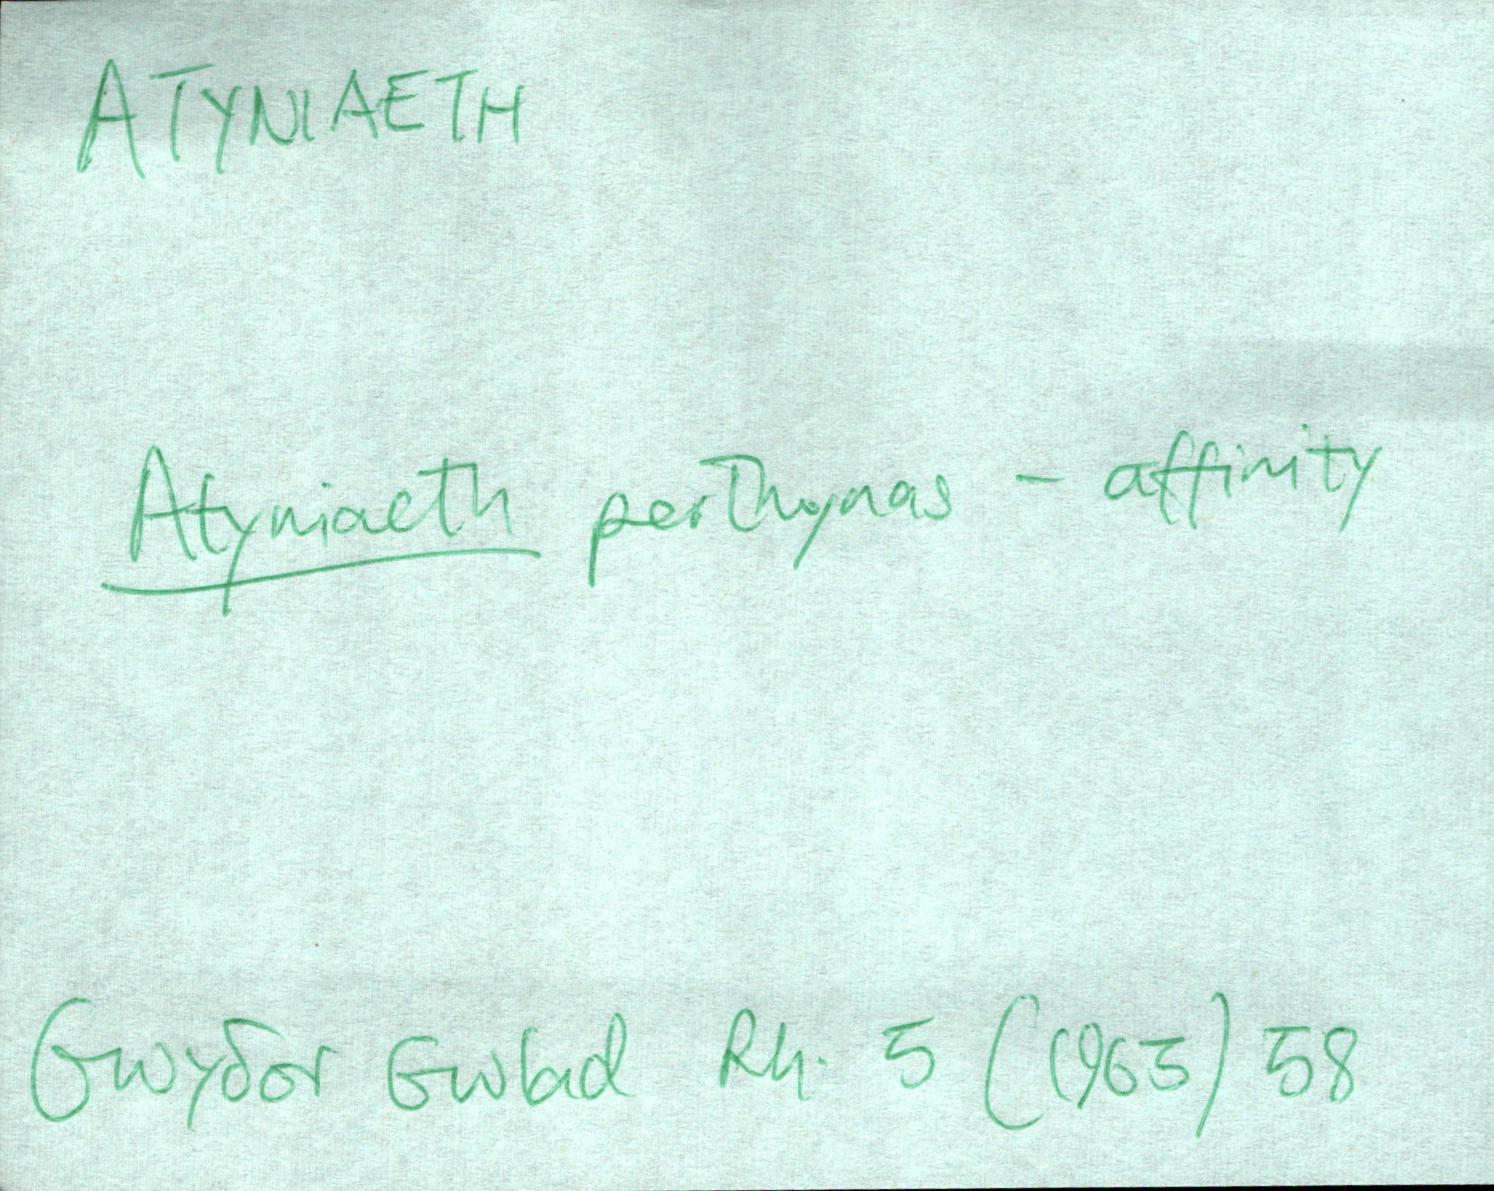 ATYNIAETH
Atyniaeth perthynas - affinity
Gwyδor Gwlad Rh. 5 (1963) 58